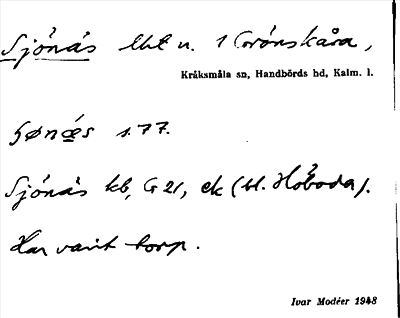 Sjónás lht u. 1 Grönskåra,
Kråksmåla sn, Handbörds hd, Kalm. l.
s. 77.
Sjónás kb, G 21, ek (bl. Hoboda).
Har varit torp.
Ivar Modéer 1948